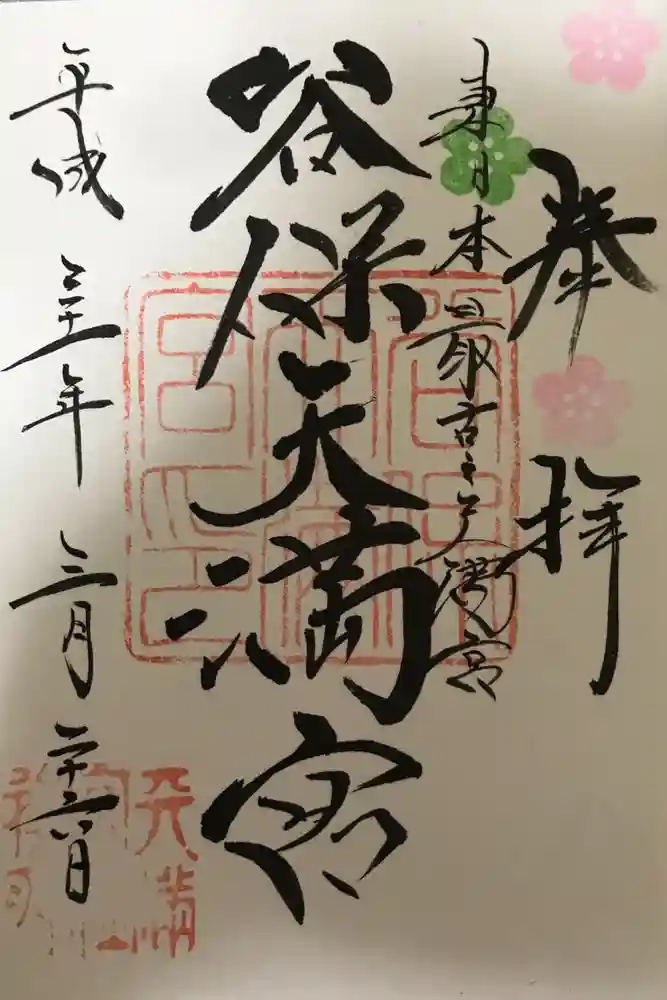 奉拝
東日本最古之天満宮
谷保天満宮
平成三十一年三月二十六日